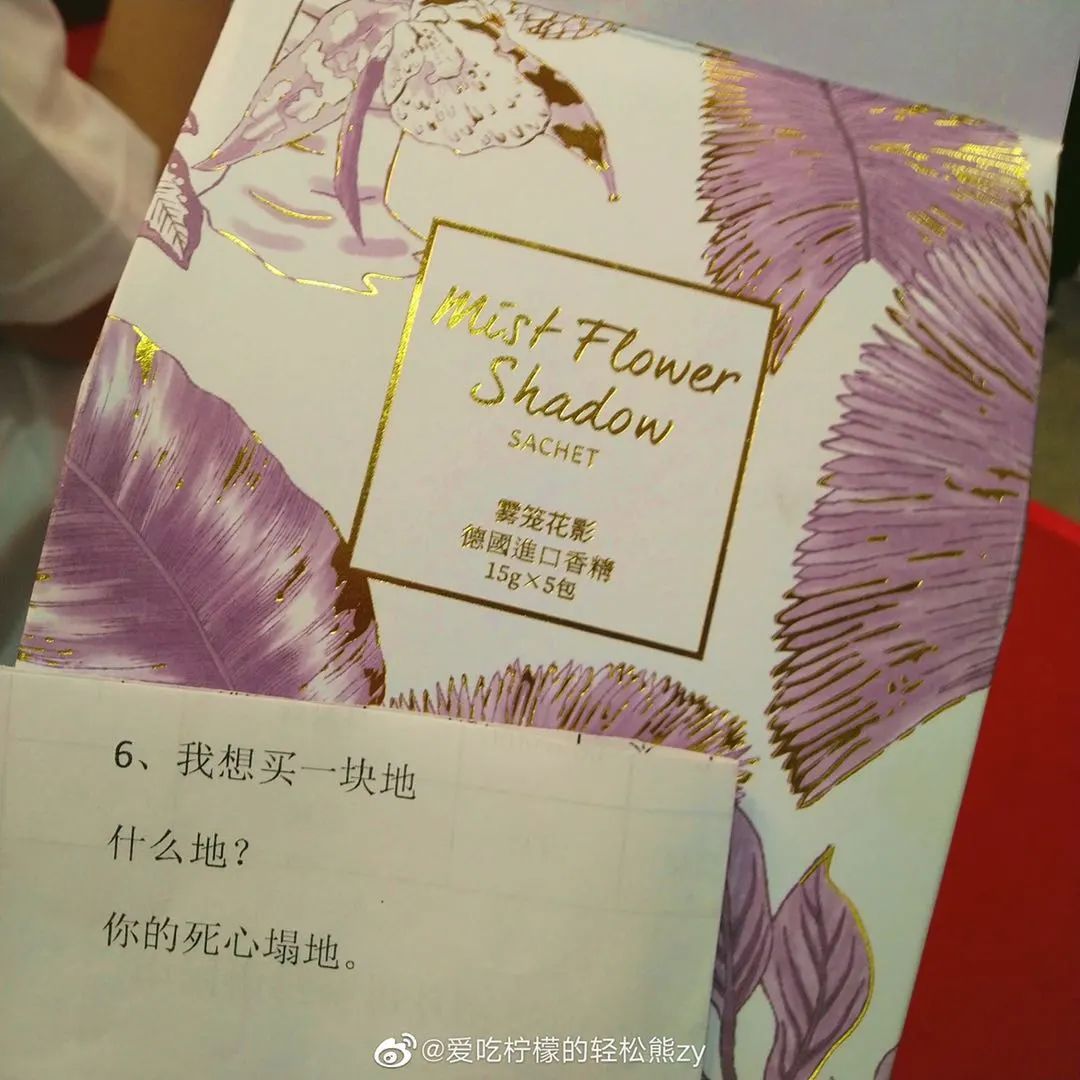 Mist Flower
Shadow
SACHET
雾笼花影
德國進口香精
15g×5包
6、我想买一块地
什么地？
你的死心塌地。
@爱吃柠檬的轻松熊zy